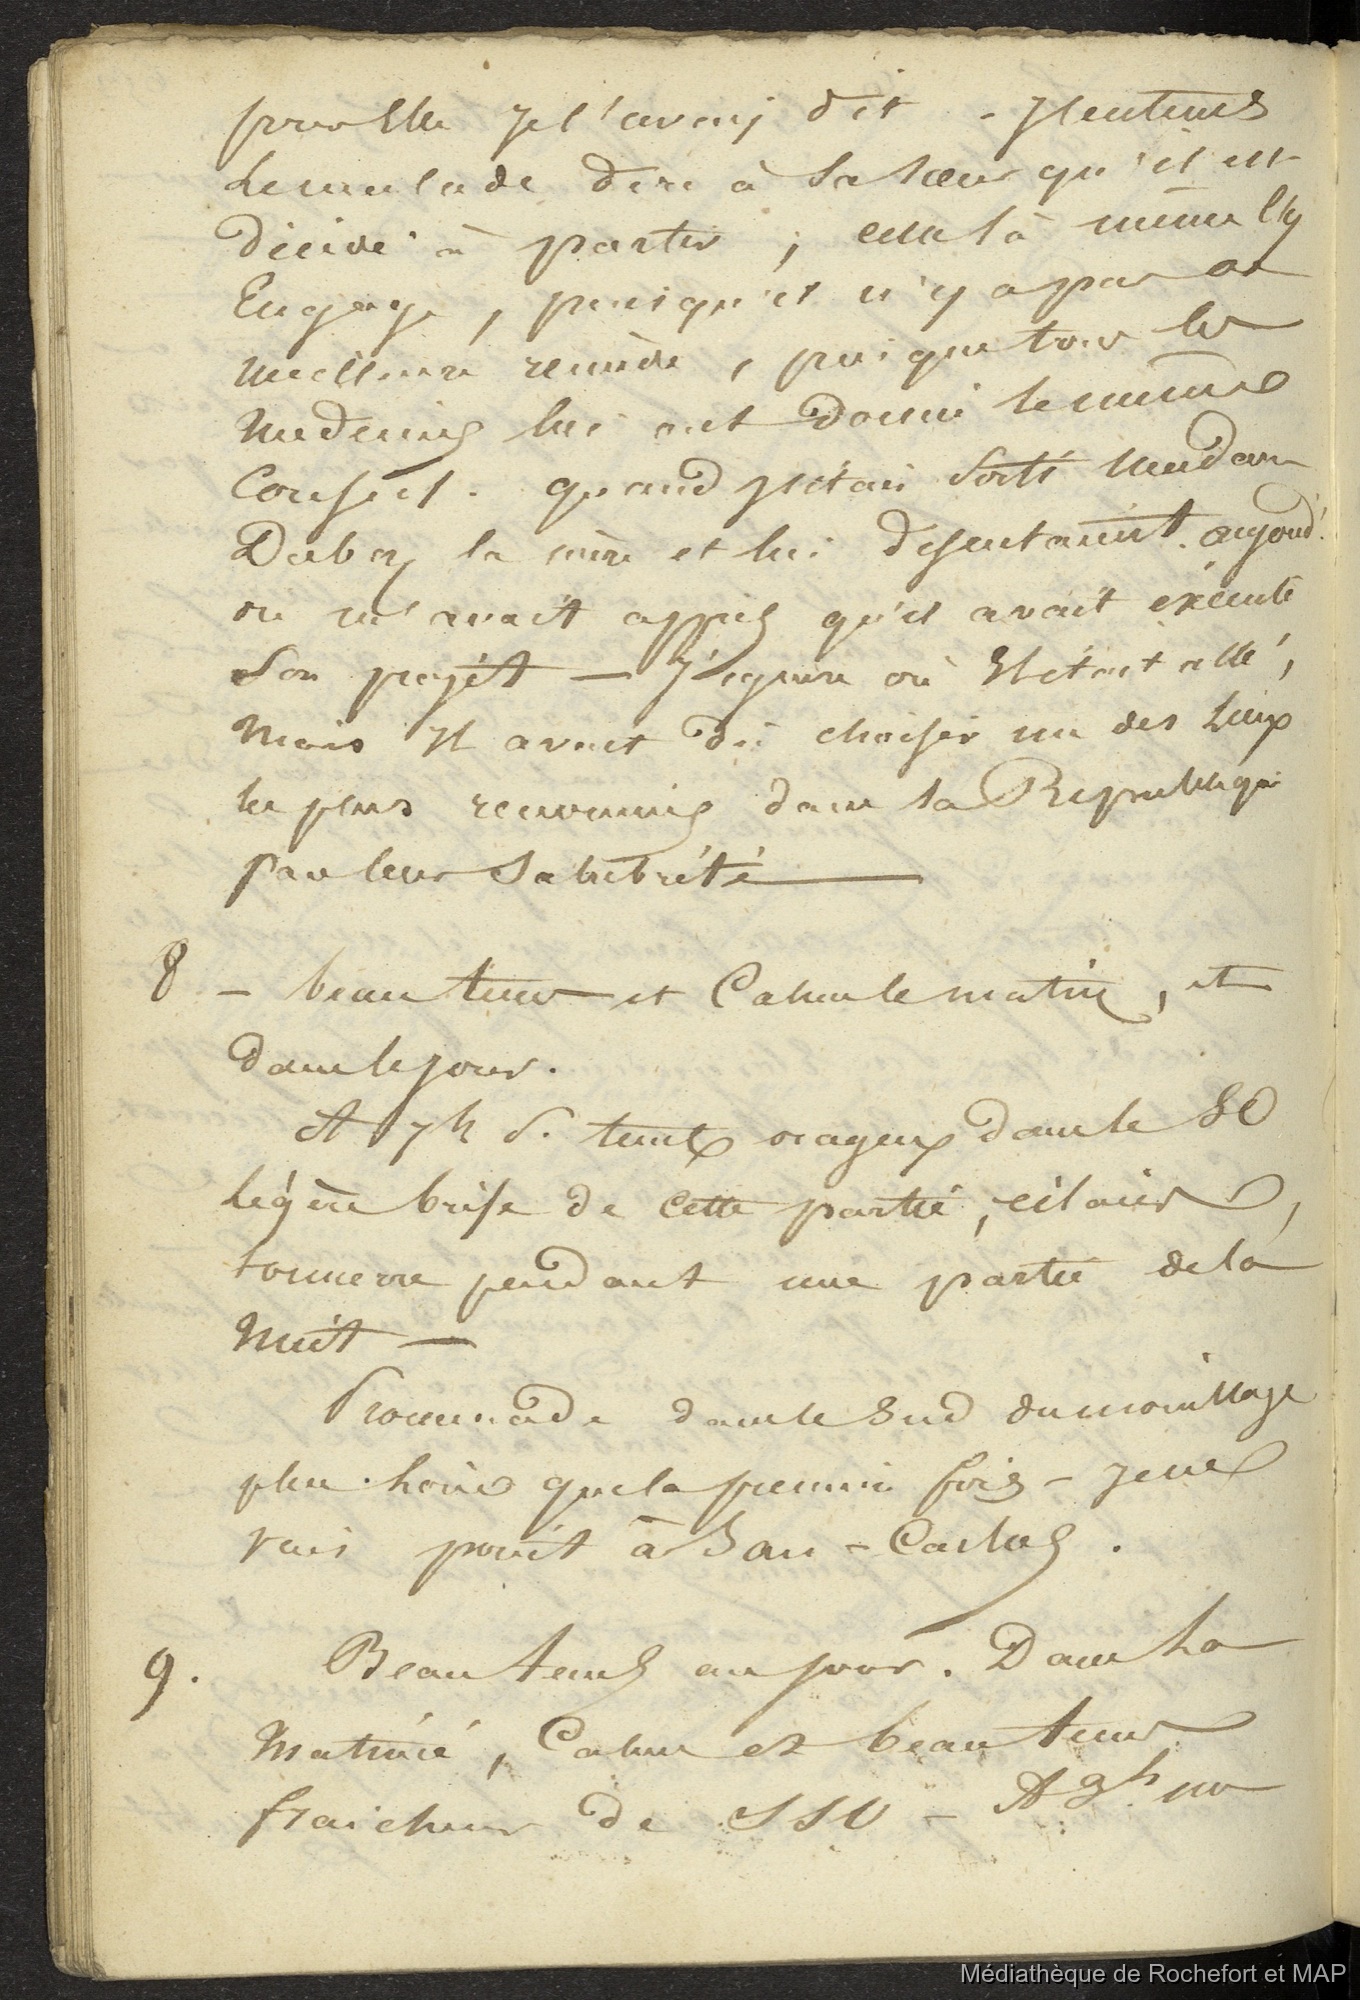 pour elle Je l'avais dit - J'entends
le malade dire à sa sœur qu'il est
décidé à partir, celle là même l'y
Engage, puisqu'il n'y a pas de
meilleur remède, puisque tous les
medecins lui ont donné le même
Conseil. quand J'étais sorti Madame
la mère et lui disputaient. aujourd'.
on m'avait appris qu'il avait éxécuté
Son projét — J'ignore où Il était allé,
Mais Il avait dû choisir un des lieux
les plus renommés dans la Republique
par leur Salubrité —
8 - beau tems et Calme le matin, et
dans le jour.
A 7h S. temps orageux dans le SO
légère brise de cette partie, éclairs,
tonnerre pendant une partie de la
Nuit —
Promenade dans le Sud du mouillage
plus loin que la premiere fois - Je ne
vais point à San-Carlos.
9. Beau tems au jour. Dans la
Matinée, Calme et beau tems
fraicheur de SSO - A 9h un